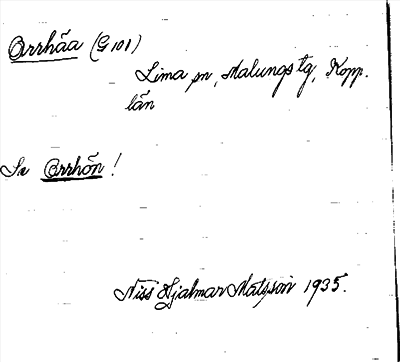 Orrhåa (G 101)
Lima sn, Malungs tg, Kopp.
län
Se Orrhån!
Niss Hjalmar Matsson 1935.